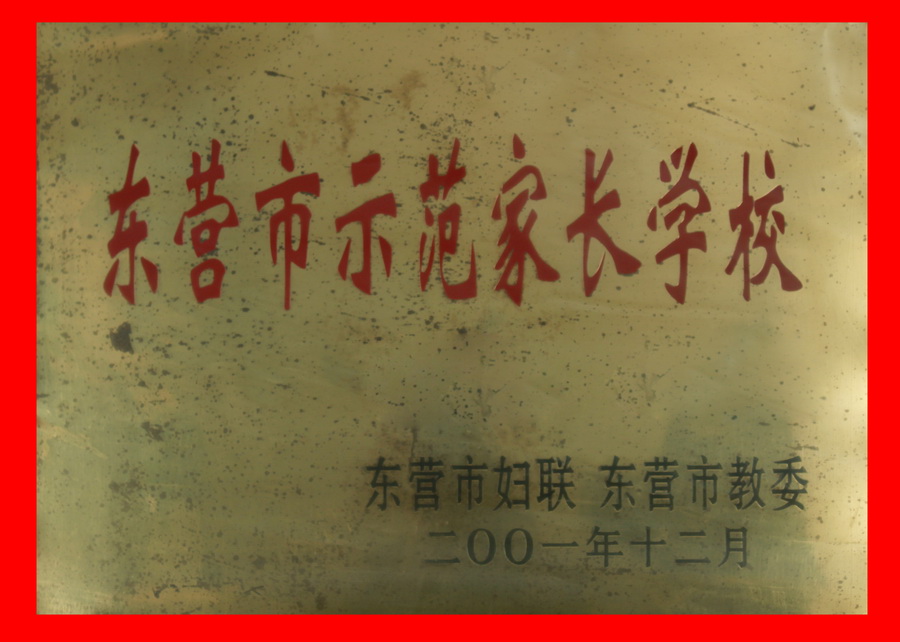 东营市示范家长学校
东营市妇联 东营市教委
二OO一年十二月